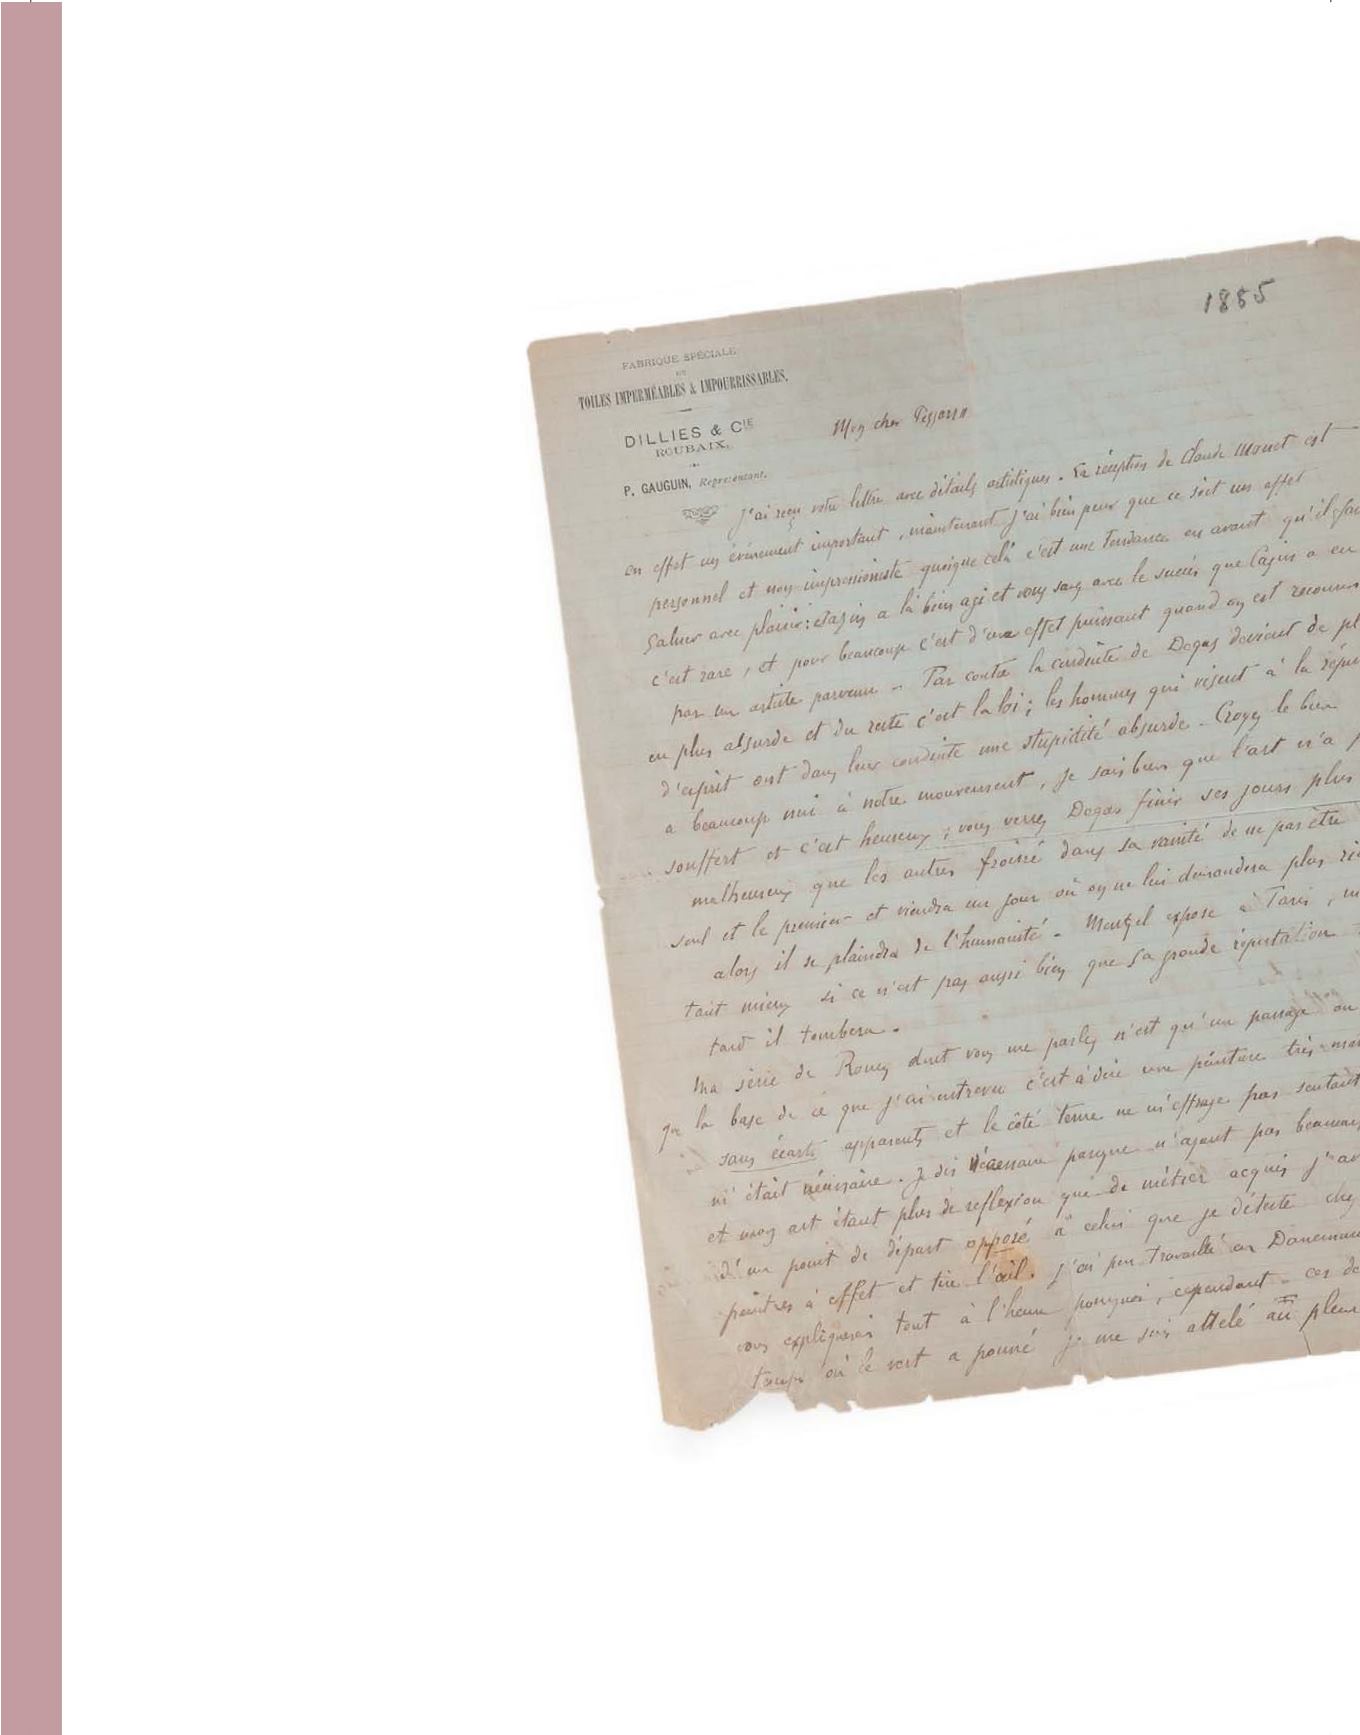 1885
FABRIQUE SPÉCIALE
DE
TOILES IMPERMÉABLES & IMPOURRISSABLES.
DILLIES & CIE
ROUBAIX.
P. GAUGUIN, Représentant.
Mon cher Pissarro
J'ai reçu votre lettre avec détails artistiques. La réception de Claude Monet est
en effet un événement important, maintenant j'ai bien peur que ce soit un effet
personnel et non impressionniste quoique celà c'est une tendance en avant qu'il
saluer avec plaisir: Cazin a là bien agi et vous savez avec le succès que Cazin a eu
c'est rare, et pour beaucoup c'est d'un effet puissant quand on est reconnu
par un artiste parvenu - Par contre la conduite de Degas devient de
en plus absurde et du reste c'est la loi; les hommes qui visent à la
d'esprit ont dans leur conduite une stupidité absurde - Croyez le bien
a beaucoup nui à notre mouvement, je sais bien que l'art n'a
souffert et c'est heureux; vous verrez Degas finir ses jours plus
malheureux que les autres froissé dans sa vanité de ne pas être
seul et le premier et viendra un jour où on ne lui demandera plus
alors il se plaindra de l'humanité - Mentzel expose à Paris,
tant mieux si ce n'est pas aussi bien que sa grande réputation
tard il tombera.
Ma série de Rouen dont vous me parlez n'est qu'un passage ou
la base de ce que j'ai entrevu c'est à dire une peinture très
sans écarts apparents et le côté terne ne m'effraye pas sentant
m'était nécessaire. Je dis nécessaire parsque n'ayant pas
et mon art étant plus de reflexion que de métier acquis
d'un point de départ opposé à celui que je déteste chez
peintres à effet et tire l'œil. J'ai peu travaillé en
vous expliquerai tout à l'heure pourquoi, cependant - ces
temps où le vert a poussé je me suis attelé au